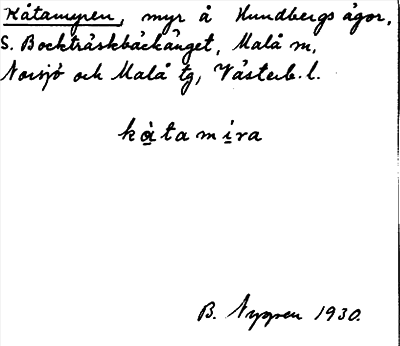 Kåtamyren, myr å Hundbergs ägor,
S. Bockträskbäckänget, Malå sn,
Norsjö och Malå tg, Västerb. l.
kå̀tami̱ra
B. Nygren 1930.